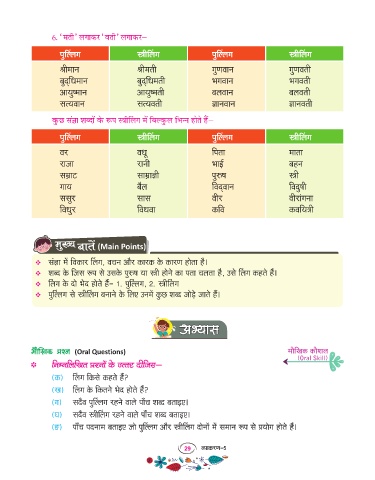 6. 'मती' लगाकर 'वती' लगाकर–
पुल्लिंग स्त्रीलिंग पुल्लिंग स्त्रीलिंग
श्रीमान श्रीमती गुणवान गुणवती
बुद्धिमान बुद्धिमती भगवान भगवती
आयुष्मान आयुष्मती बलवान बलवती
सत्यवान सत्यवती ज्ञानवान ज्ञानवती
कुछ संज्ञा शब्दों के रूप स्त्रीलिंग में बिल्कुल भिन्न होते हैं–
पुल्लिंग स्त्रीलिंग पुल्लिंग स्त्रीलिंग
वर वधू पिता माता
राजा रानी भाई बहन
सम्राट साम्राज्ञी पुरुष स्त्री
गाय बैल विद्वान विदुषी
ससुर सास वीर वीरांगना
विधुर विधवा कवि कवयित्री
मुख्य बातें (Main Points)
❖ संज्ञा में विकार लिंग, वचन और कारक के कारण होता है।
❖ शब्द के जिस रूप से उसके पुरुष या स्त्री होने का पता चलता है, उसे लिंग कहते हैं।
❖ लिंग के दो भेद होते हैं– 1. पुल्लिंग, 2. स्त्रीलिंग
❖ पुल्लिंग से स्त्रीलिंग बनाने के लिए उनमें कुछ शब्द जोड़े जाते हैं।
अभ्यास
मौखिक प्रश्न (Oral Questions)
मौखिक कौशल
(Oral Skill)
❖ निम्नलिखित प्रश्नों के उत्तर दीजिए–
(क) लिंग किसे कहते हैं?
(ख) लिंग के कितने भेद होते हैं?
(ग) सदैव पुल्लिंग रहने वाले पाँच शब्द बताइए।
(घ) सदैव स्त्रीलिंग रहने वाले पाँच शब्द बताइए।
(ङ) पाँच पदनाम बताइए जो पुल्लिंग और स्त्रीलिंग दोनों में समान रूप से प्रयोग होते हैं।
29 व्याकरण–5